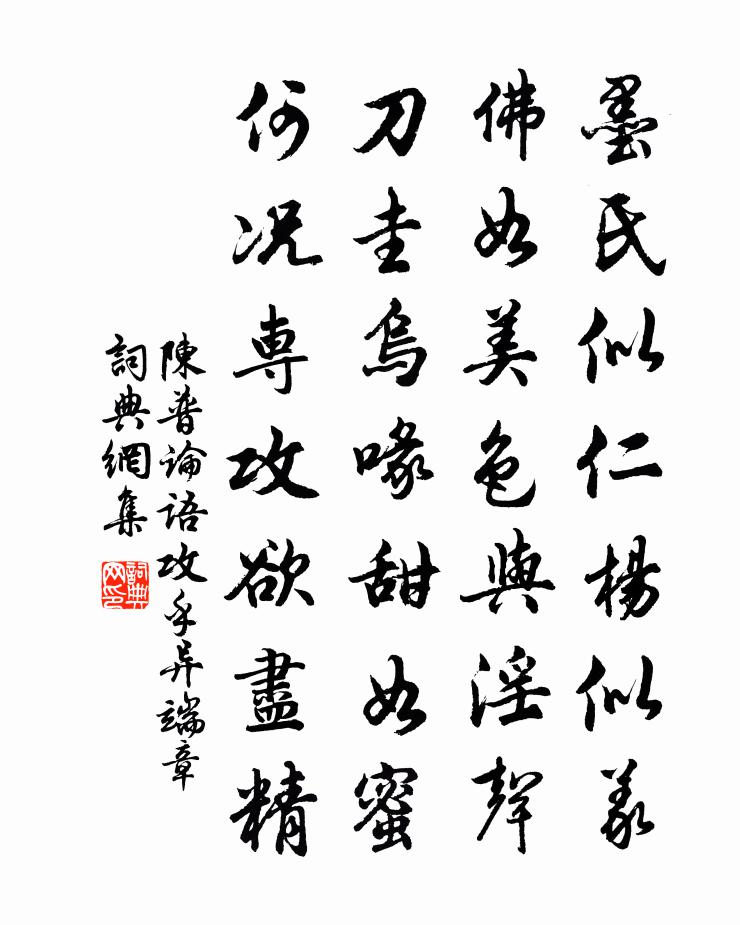 墨氏似仁楊似義
佛如美色與淫聲
刀圭烏喙甜如蜜
何況專攻欲盡精
陳普論語攻乎异端章
詞典網集
詞典网印